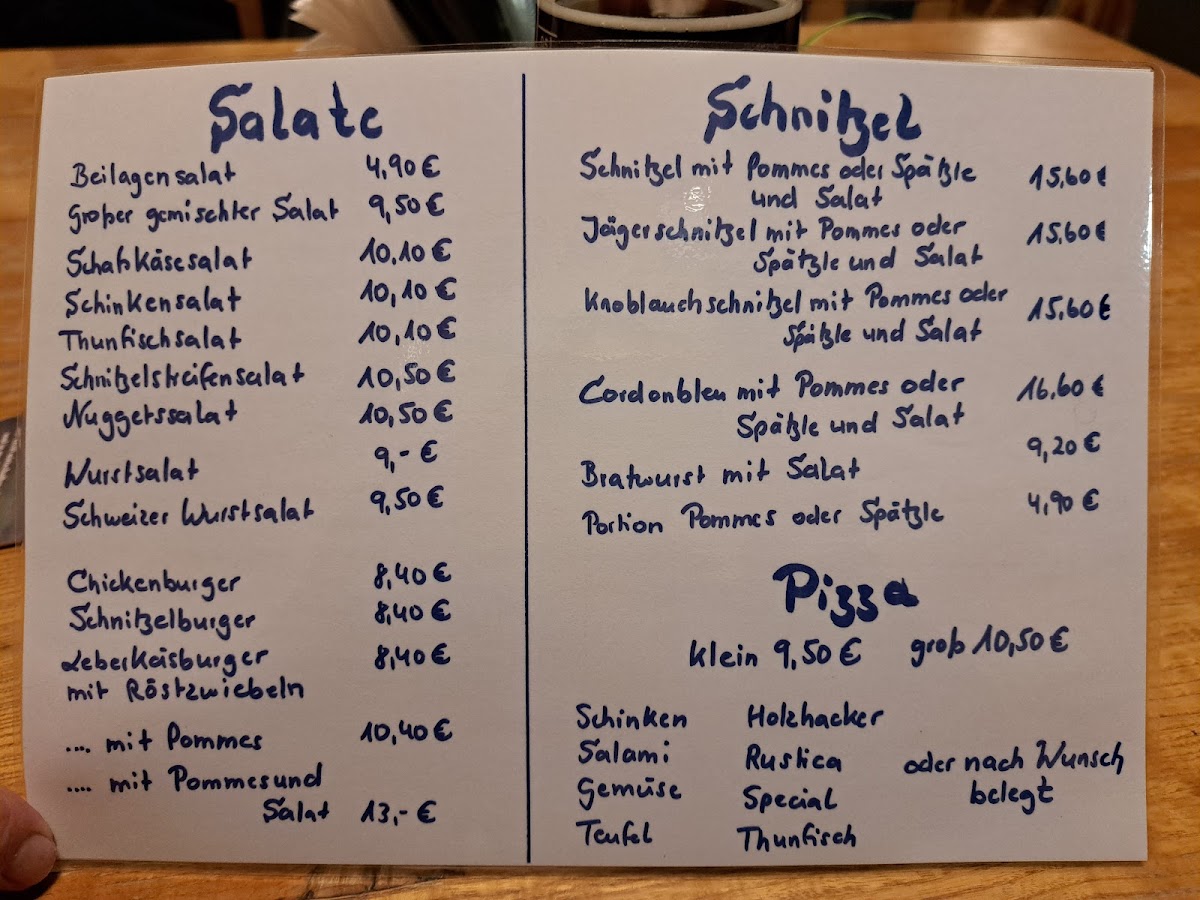 Salate
Beilagensalat 4,90 €
Großer gemischter Salat 9,50 €
Schafskäsesalat 10,10 €
Schinkensalat 10,10 €
Thunfischsalat 10,10 €
Schnitzelstreifensalat 10,50 €
Nuggetssalat 10,50 €
Wurstsalat 9,- €
Schweizer Wurstsalat 9,50 €
Chickenburger 8,40 €
Schnitzelburger 8,40 €
Leberkäsburger 8,40 €
mit Röstzwiebeln
.... mit Pommes 10,40 €
.... mit Pommes und
Salat 13,- €
Schnitzel
Schnitzel mit Pommes oder Spätzle 15,60 €
und Salat
Jägerschnitzel mit Pommes oder 15,60 €
Spätzle und Salat
Knoblauchschnitzel mit Pommes oder 15,60 €
Spätzle und Salat
Cordonbleu mit Pommes oder 16,60 €
Spätzle und Salat
Bratwurst mit Salat 9,20 €
Portion Pommes oder Spätzle 4,90 €
Pizza
klein 9,50 € groß 10,50 €
Schinken Holzhacker
Salami Rustica oder nach Wunsch
Gemüse Special belegt
Teufel Thunfisch